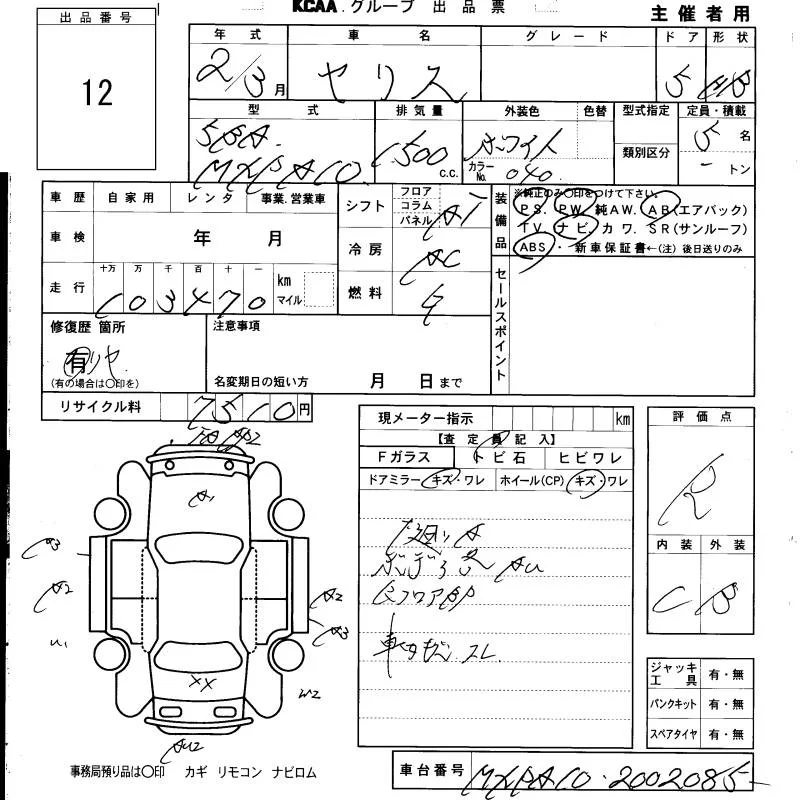 KCAA.グループ 出品票
主催者用
出品番号
12
年式 車名 グレード ドア 形状
2/3月 ヤリス 5 HB
型式 排気量 外装色 色替 型式指定 定員・積載
5BA
MXPA10. 1500 c.c. ホワイト カラーNo. 040. 類別区分 5名 - トン
車歴 自家用 レンタ 事業.営業車
車検 年 月
走行 十万 万 千 百 十 一
103470 km マイル
シフト フロア コラム パネル AT
冷房 AC
燃料 ガ
装備品
※純正のみ〇印をつけて下さい。
PS. PW. 純AW. AB(エアバック)
TV. ナビ. カワ. SR(サンルーフ)
ABS ・ 新車保証書←(注)後日送りのみ
セールスポイント
修復歴 箇所
有 リヤ
(有の場合は〇印を)
注意事項
名変期日の短い方 月 日まで
リサイクル料 7510円
A2
A1
A3
A2
U1
A2
A3
W2
XX
AU2
現メーター指示 km
【査定員記入】
Fガラス トビ石 ヒビワレ
ドアミラー キズ・ワレ ホイール(CP) キズ・ワレ
下廻りA
ボデーろ AU
フロア部
車内 スレ
評価点
R
内装 外装
C B
ジャッキ工具 有・無
パンクキット 有・無
スペアタイヤ 有・無
事務局預り品は〇印 カギ リモコン ナビロム
車台番号 MXPA10-2002085